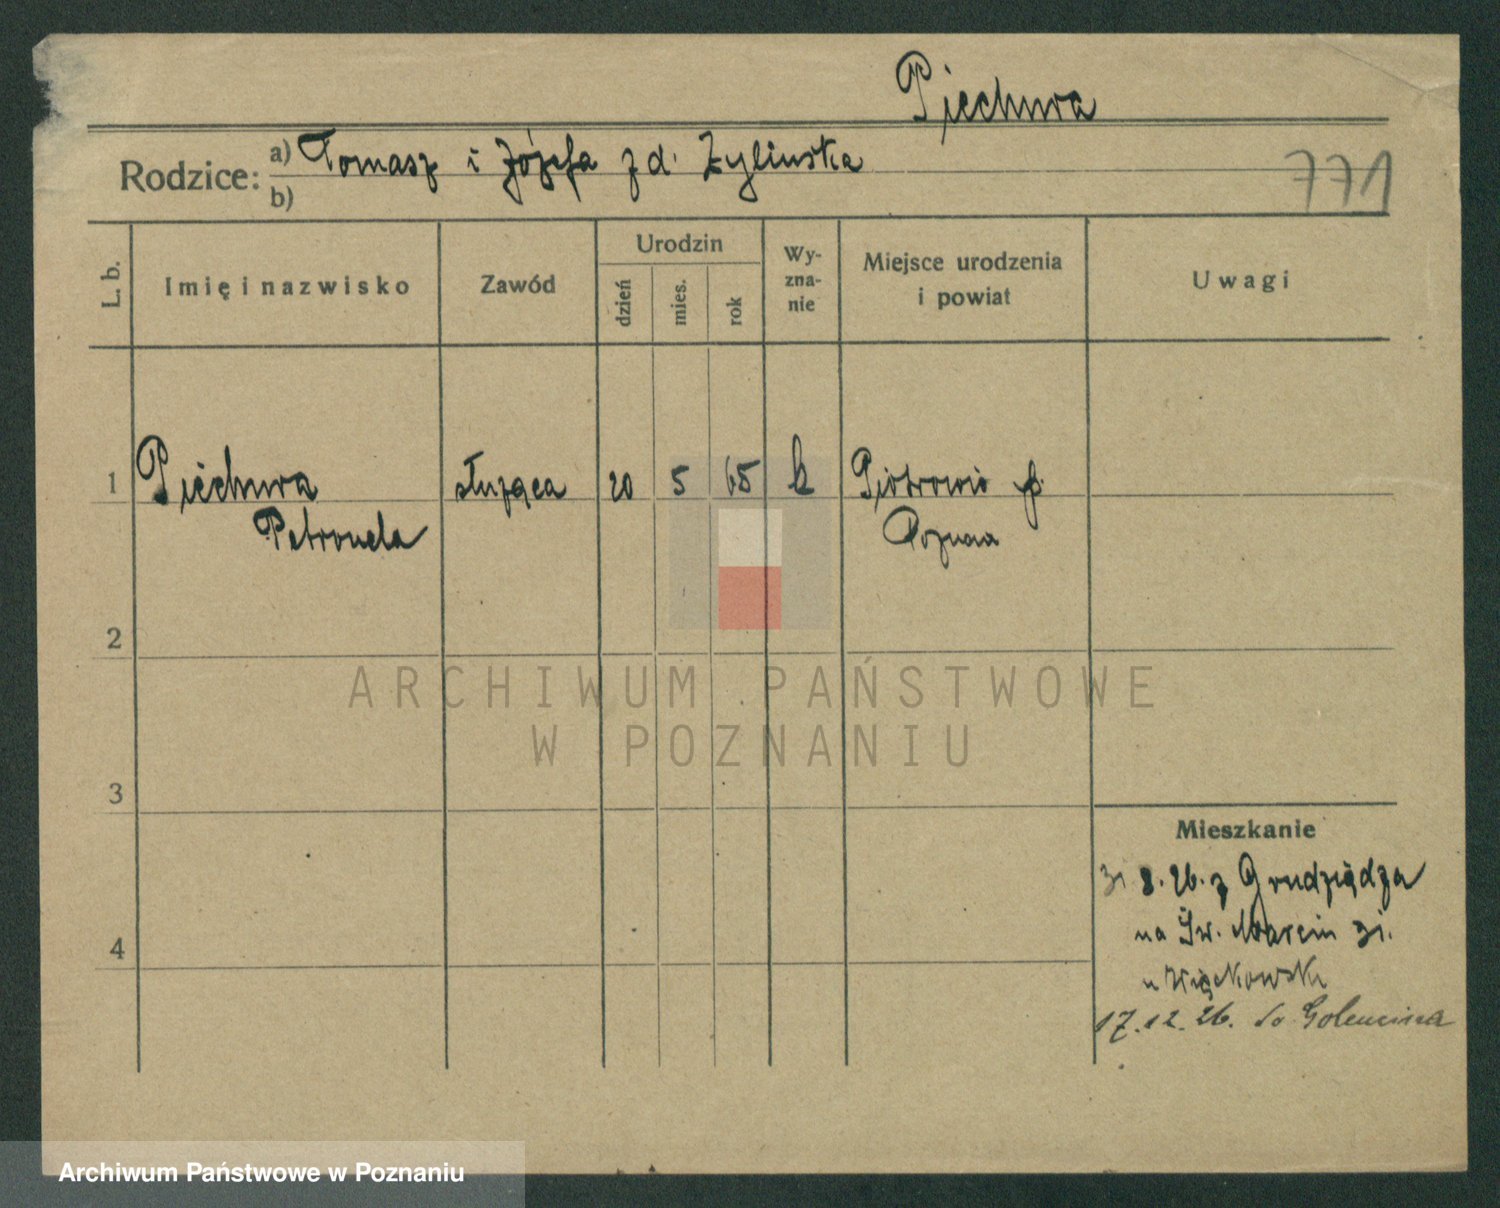 Piechura
Rodzice: a) Tomasz i Józefa z d. Żylińska
b)
771
L. b. Imię i nazwisko Zawód Urodzin dzień mies. rok Wy-zna-nie Miejsce urodzenia i powiat Uwagi
1 Piechura służąca 20 5 65 k Piotrowo p.
Petronela Pozna
2
3
4
Mieszkanie
31 8. 26. z Grudziądza
na Św. Marcin 31.
u
17. 12. 26. do Golencina
ARCHIWUM PAŃSTWOWE
W POZNANIU
Archiwum Państwowe w Poznaniu